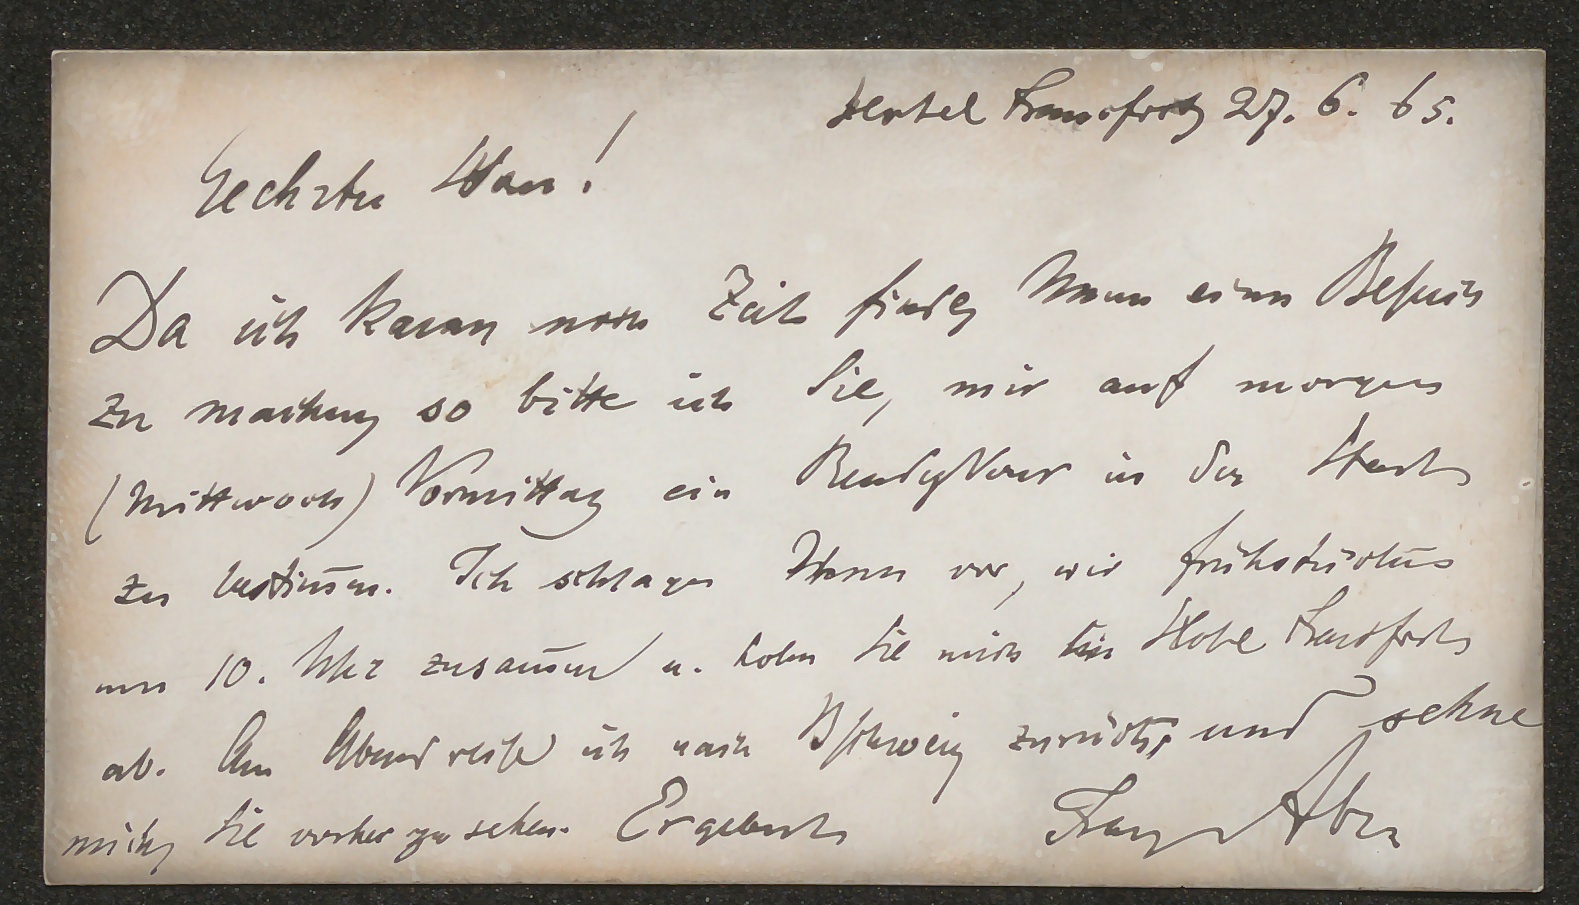 Hotel Frankfurt 27. 6. 65.
Geehrter Herr!
Da ich kaum noch Zeit finde, Ihnen einen Besuch
zu machen, so bitte ich Sie, mir auf morgen
(Mittwoch) Vormittag ein Rendezvous in der Stadt
zu bestimen. Ich schlage Ihnen vor, wir frühstücken
um 10. Uhr zusamen u. holen Sie mich im Hotel Frankfurt
ab. Am Abend reise ich nach zurück, und sehne
mich, Sie vorher zu sehen. Ergebenst Franz Abt